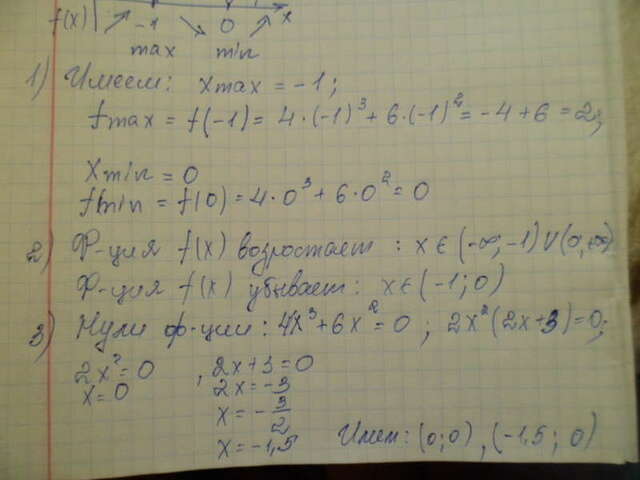 f(x) -1 0 x
max min
1) Имеем: xmax = -1;
fmax = f(-1) = 4·(-1)³ + 6·(-1)² = -4 + 6 = 2;
xmin = 0
fmin = f(0) = 4·0³ + 6·0² = 0
2) Ф-ция f(x) возростает : x ∈ (-∞; -1) ∪ (0; +∞)
Ф-ция f(x) убывает: x ∈ (-1; 0)
3) Нули ф-ции: 4x³ + 6x² = 0 ; 2x²(2x+3) = 0;
2x² = 0 , 2x + 3 = 0
x = 0 2x = -3
x = -3/2
x = -1,5 Имеем: (0; 0) , (-1,5 ; 0)